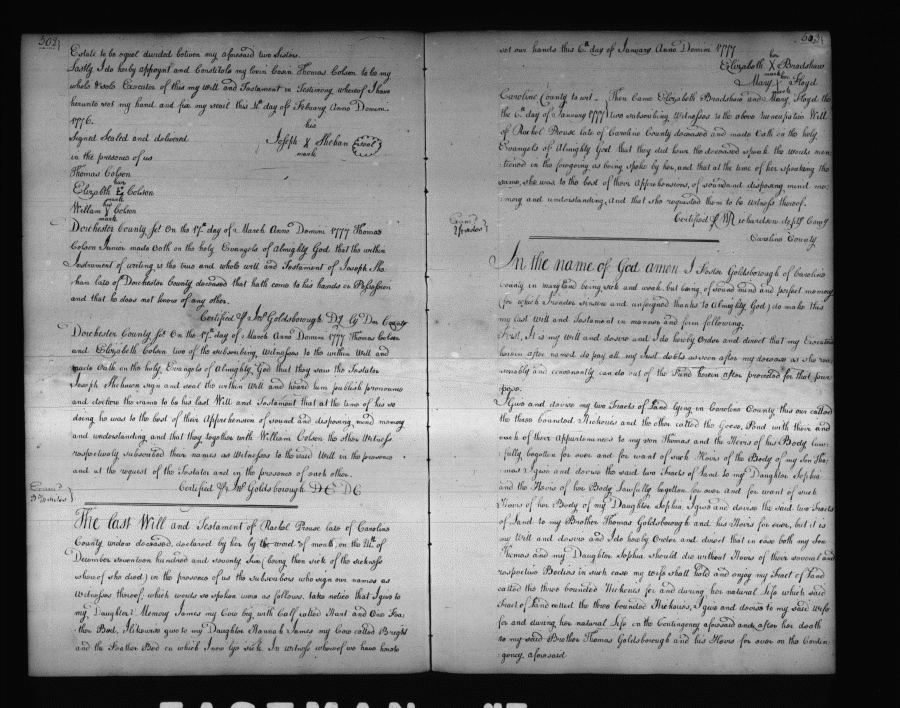 502
Estate to be equal divided between my aforesaid two Sisters.
Lastly I do herby appoynt and Constitute my lovin Cosen Thomas Colsen to be my
whole & sole Executor of this my will and Testament in Testimony whereof I have
herunto set my hand and fix my seail this day of February Anno Domini
1776.
his
Signed Sealed and delivered Joseph X Shehan Seal
in the presence of us mark
Thomas Colson
her
Elizabth E Colson
mark
his
William X Colson
mark
Dorchester County Sct On the 17th day of March Anno Domini 1777 Thomas
Colson Junior made Oath on the holy Evangels of Almighty God, that the within
Instrument of writing is the true and whole will and Testament of Joseph She
han late of Dorchester County deceased that hath come to his hands or Possession
and that he does not know of any other.
Certified Jno Goldsborough Dy Dor County
Dorchester County Sct On the 17th day of March Anno Domini 1777 Thomas Colson
and Elizabeth Colson two of the subscribing Witnesses to the within Will and
made Oath on the holy Evangels of Almighty God that they saw the Testator
Joseph Shehawn sign and seal the within Will and heard him publish pronounce
and declare the same to be his last Will and Testament that at the time of his so
doing he was to the best of their Apprehension of sound and disposing mind memory
and understanding and that they together with William Colson the other Witness
respectively subscribed their names as Witnesses to the said Will in the presence
and at the request of the Testator and in the presence of each other.
Certified Jno Goldsborough D C D C
The last Will and Testament of Rachel Prouse late of Caroline
County widow deceased, declared by her by the word of mouth, on the
December seventeen hundred and seventy Six (being then sick of the sickness
whereof she died) in the presence of us the Subscribers who sign our names as
Witnesses thereof, which words so spoken was as follows. take notice that I give to
my Daughter Memory James my Cow big with Calf called Hart and One Fea
ther Bed, Likewise give to my Daughter Hannah James my Cow called Bright
and the Feather Bed on which I now lye sick. In witness whereof we have hereto
503
set our hands this 6th day of January Anno Domini 1777
her
Elizabeth X Bradshaw
mark
her
Mary X Floyd
mark
Caroline County to wit. Then Came Elizabeth Bradshaw and Mary Floyd the
the 6th day of January 1777 two subscribing Witnesses to the above Nuncupative Will
of Rachel Prouse late of Caroline County deceased and made Oath on the holy
Evangels of Almighty God that they did hear the deceased speak the words men
tioned in the foregoing, as being spoke by her, and that at the time of her speaking the
same, she was, to the best of their Apprehensions, of sound and disposing, mind me
mory and understanding, And that she requested them to be Witness thereof.
Certified Richardson
Caroline County.
In the name of God amen I Foster Goldsborough of Caroline
County in Maryland being sick and weak but being of sound mind and perfect memory
(for which I render sincere and unfeigned thanks to Almighty God) do make this
my last Will and Testament in manner and form following.
First, It is my will and desire and I do hereby Order and direct that my Executrix
herein after named do pay all my Just debts as soon after my decease as she rea
sonably and conveniently can do out of the Fund herein after provided for that pur
pose.
I give and devise my two Tracts of Land lying in Caroline County this one called
the three bounded Hickories and the other called the Goose Pond with their and
each of their Appurtenances to my son Thomas and the Heirs of his Body law
fully begotten for ever and for want of such Heirs of the Body of my Son Tho
mas I give and devise the said two Tracts of Land to my Daughter Sophia
and the Heirs of her Body Lawfully begotten for ever and for want of such
Heirs of her Body of my Daughter Sophia, I give and devise the said two Tracts
of Land to my Brother Thomas Goldsborough and his Heirs for ever, but it is
my Will and desire and I do hereby Order and direct that in case both my Son
Thomas and my Daughter Sophia should die without Heirs of their several and
respective Bodies in such case my wife shall hold and enjoy my Tract of Land
called the three bounded Hickories for and during her natural Life which said
Tract of Land called the three bounded Hickories, I give and devise to my said Wife
for and during her natural Life on the Contingency aforesaid and after her death
to my said Brother Thomas Goldsborough and his Heirs for ever on the Contin
gency aforesaid